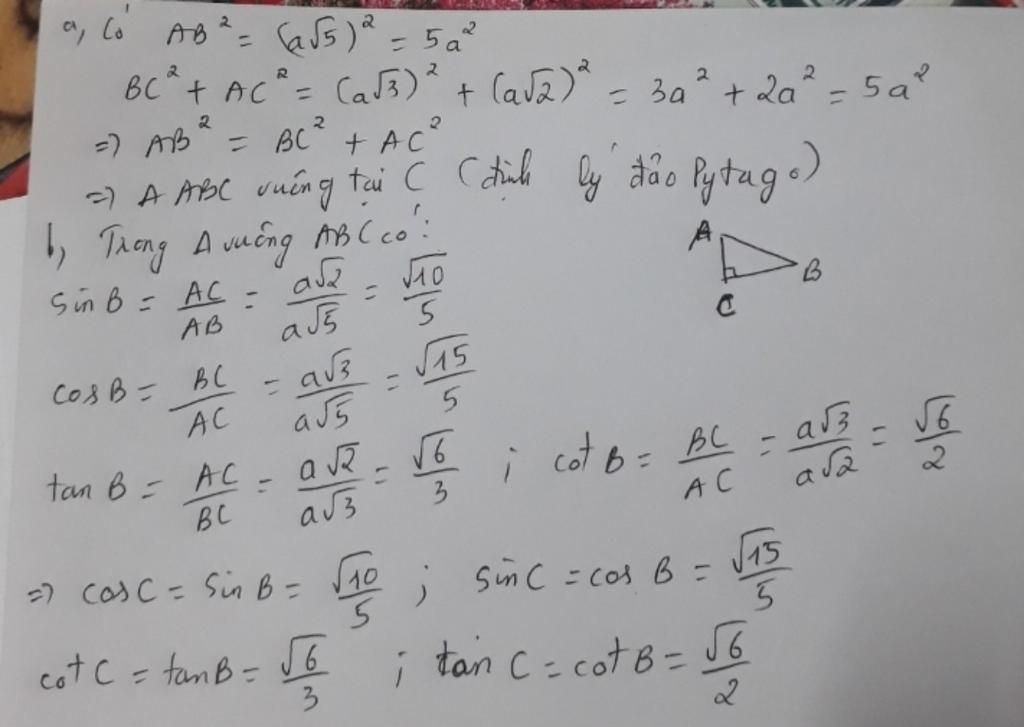 a, Có AB² = (a√5)² = 5a²
BC² + AC² = (a√3)² + (a√2)² = 3a² + 2a² = 5a²
=> AB² = BC² + AC²
=> Δ ABC vuông tại C (định lý đảo Pytago)
b, Trong Δ vuông ABC có:
sin B = AC/AB = a√2/a√5 = √10/5
cos B = BC/AC = a√3/a√5 = √15/5
tan B = AC/BC = a√2/a√3 = √6/3 ; cot B = BC/AC = a√3/a√2 = √6/2
=> cos C = sin B = √10/5 ; sin C = cos B = √15/5
cot C = tan B = √6/3 ; tan C = cot B = √6/2
A
B
C